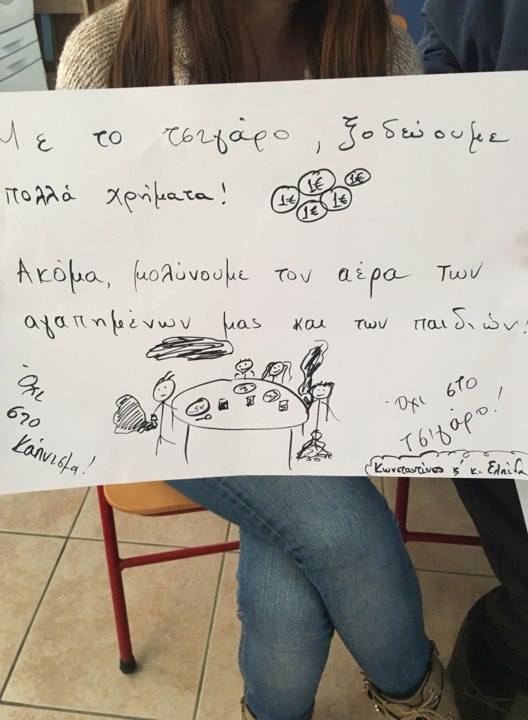 Με το τσιγάρο, ξοδεύουμε
πολλά χρήματα!
1€ 1€ 1€ 1€ 1€
Ακόμα, μολύνουμε τον αέρα των
αγαπημένων μας και των παιδιών!
Όχι
στο
Κάπνισμα!
- Όχι στο
τσιγάρο!
Κωνσταντίνος